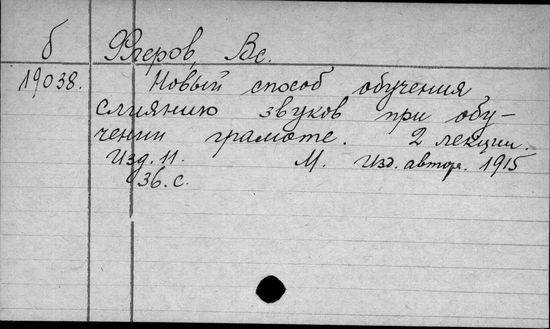 б
Флеров, Вс.
19038.
Новый способ обучения
слиянию звуков при обу-
чении грамоте. 2 лекции.
Изд. 11. М. Изд. автора. 1915
36. с.